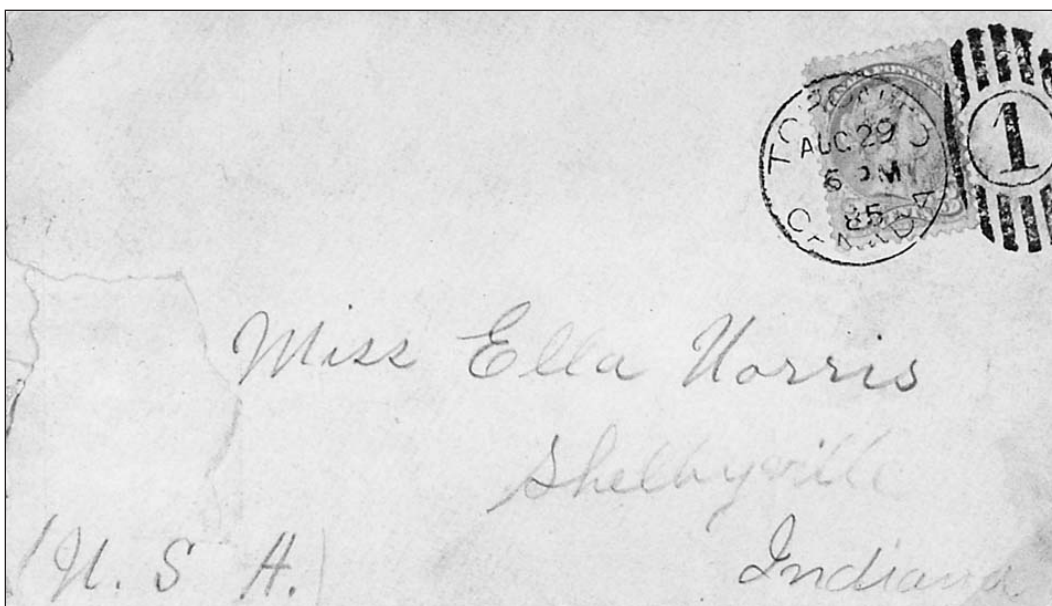 TORONTO
AUG 29
6 PM
85
CANADA
1
Miss Ella Norris
Shelbyville
Indiana
(U. S A.)